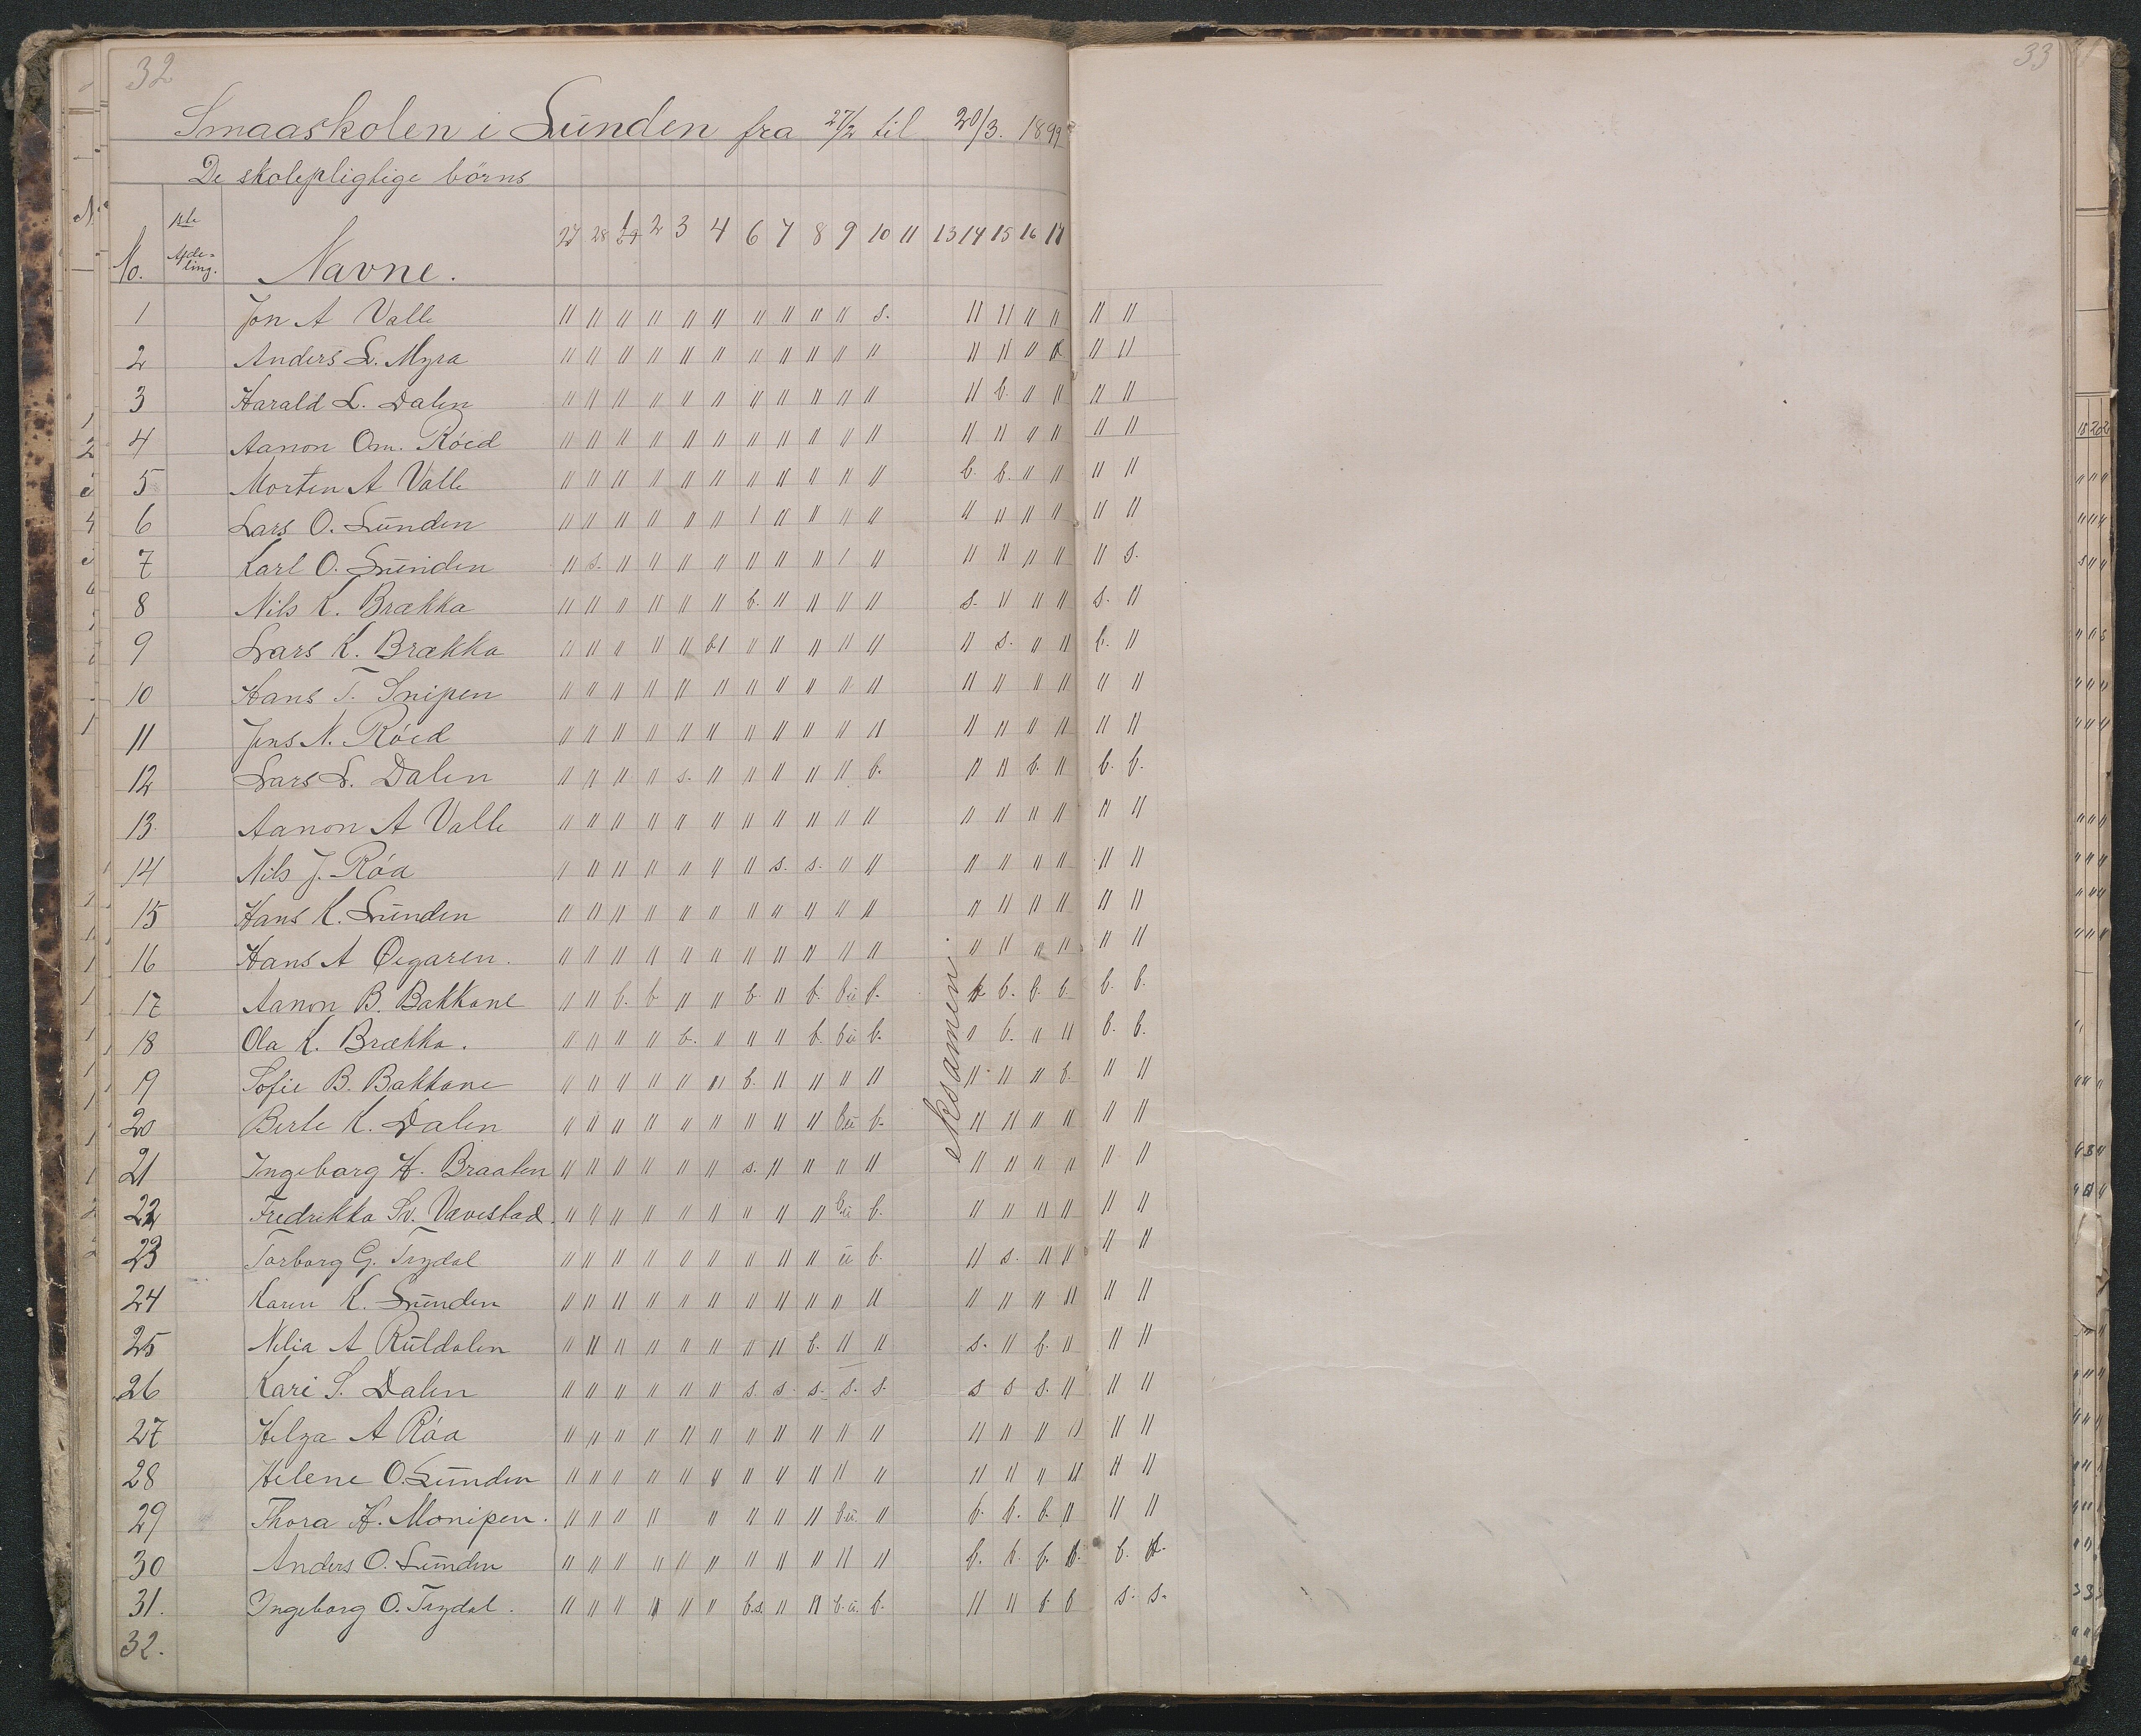 32
33
Smaaskolen i Sünden fra 27/2 til 20/3. 1899
De skolepligtige börns
No. 1ste Afde=ling. Navne. 27 28 1 2 3 4 6 7 8 9 10 11 13 14 15 16 17
1 Jon A Valle " " " " " " " " " " s. " " " " " "
2 Anders L. Myra
3 Harald L. Dalen " b. " " " "
4 Aanon Om. Röed
5 Morten A Valle b. b. " " " "
6 Lars O. Sünden
7 Karl O. Sünden " s. " " " " " " " " " " " " " " s.
8 Nils K. Brækka " " " " " " b. " " " " s. " " " s. "
9 Lars K. Brækka " s. " " b. "
10 Hans T. Snipen
11 Jens N. Röed
12 Lars L. Dalen " " " " s. " " " " " b. " " b. " b. b.
13. Aanon A Valle
14 Nils J. Röa " " " " " " " s. s. " " " " " " " "
15 Hans K. Sünden
16 Hans A Øygaren.
17 Aanon B. Bakkane " " b. b. " " b. " b. bü b. b. b. b. b. b.
18 Ola K. Brækka. " " " " b. " " " b. bü b. " b. " " b. b.
19 Sofie B. Bakkane " " " " " " b. " " " " " " " b. " "
20 Berte K. Dalen " " " " " " " " " bü b. " " " " " "
21 Ingeborg H. Braaten " " " " " " s. " " " " " " " " " "
22 Fredrikka Sv. Vævestad. " " " " " " " " " bü b. " " " " " "
23 Torborg G. Trydal " " " " " " " " " ü b. " s. " " " "
24 Karen K. Sünden
25 Nilia A Rüldalen " " " " " " " " b. " " s. " b. " " "
26 Kari S. Dalen " " " " " " s. s. s. s. s. s s s. " " "
27 Helga A Röa
28 Helene O. Sünden
29 Thora H. Monipen. " " " " " " " " bü. " b. b. b. " " "
30 Anders O. Sünden " " " " " " " " " " " b. b. b. b. b.
31. Ingeborg O. Trydal. " " " " " " b.s. " " b.ü. b. " " b. b s. s.
32.
eksamen.